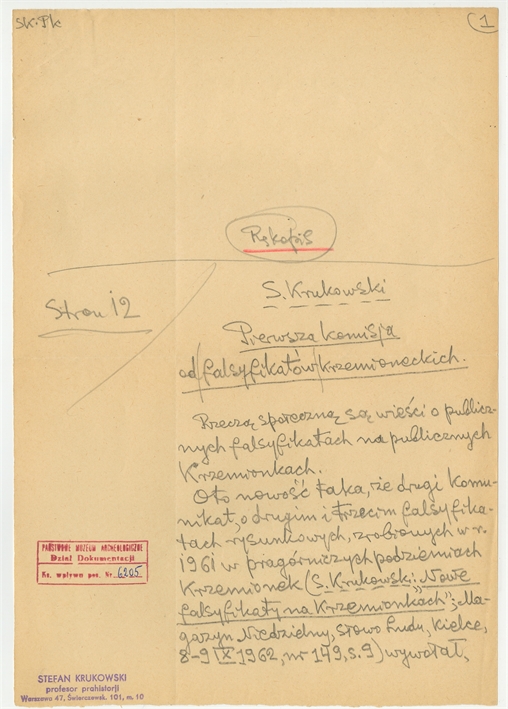 SK. Pk
1
Rękopis
Stron 12
S. Krukowski
Pierwsza komisja
od falsyfikatów krzemioneckich.
Rzeczą społeczną są wieści o publicz-
nych falsyfikatach na publicznych
Krzemionkach.
Oto nowość taka, że drugi komu-
nikat, o drugim i trzecim falsyfika-
tach rysunkowych, zrobionych w r.
1961 w pragórniczych podziemiach
Krzemionek (S. Krukowski: „Nowe
falsyfikaty na Krzemionkach"; Ma-
gazyn Niedzielny, Słowo Ludu, Kielce,
8-9 IX 1962, nr 149, s. 9) wywołał,
PAŃSTWOWE MUZEUM ARCHEOLOGICZNE
Dział Dokumentacji
Ks. wpływa poz. Nr. 6205
STEFAN KRUKOWSKI
profesor prahistorji
Warszawa 47, Świerczewsk. 101, m. 10